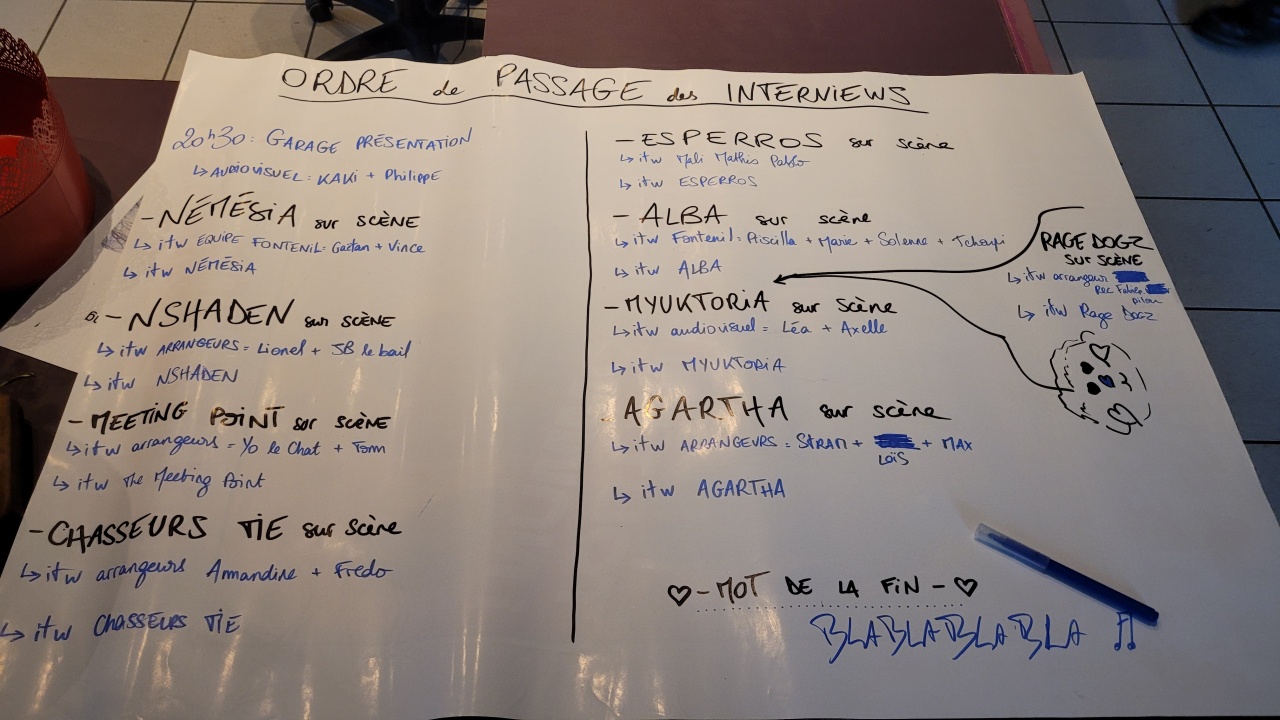 ORDRE de PASSAGE des INTERVIEWS
20h30: GARAGE PRÉSENTATION
↳ AUDIOVISUEL: KAKi + Philippe
- NÉMÉSiA sur SCÈNE
↳ itw ÉQUIPE FONTENIL: Gaëtan + Vince
↳ itw NÉMÉSiA
- NSHADEN sur SCÈNE
↳ itw ARRANGEURS = Lionel + JB le bail
↳ itw NSHADEN
- MEETING POiNT sur SCÈNE
↳ itw arrangeurs = Yo le Chat + Tom
↳ itw The Meeting Point
- CHASSEURS TiE sur scène
↳ itw arrangeurs Amandine + Fredo
↳ itw Chasseurs TiE
- ESPERROS sur scène
↳ itw Mali Mathis Pablo
↳ itw ESPERROS
- ALBA sur scène
↳ itw Fontenil: Priscilla + Marie + Solenne + Tchoupi
↳ itw ALBA
RAGE DOGZ
SUR SCÈNE
↳ itw arrangeur
Rec Fabien
pilou
↳ itw Rage DOGZ
- MYUKTORiA sur Scène
↳ itw audiovisuel = Léa + Axelle
↳ itw MYUKTORiA
- AGARTHA sur scène
↳ itw ARRANGEURS = STRAM + LOÏS + MAX
↳ itw AGARTHA
♡ - MOT DE LA FiN - ♡
BLABLABLABLA ♫